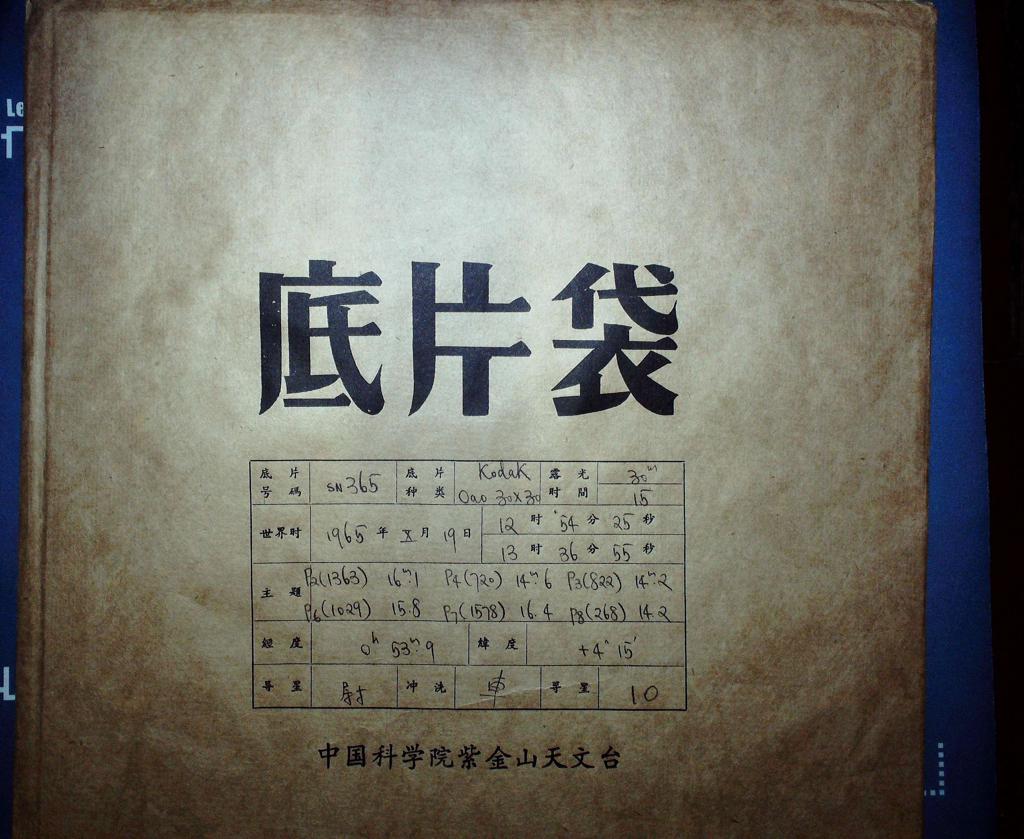 Le
底片袋
底片号碼 SN365 底片种类 Kodak Oao 30X30 露光时間 30m 15
世界时 1965年 X月 19日 12时 54分 25秒
13时 36分 55秒
主题 P2(1363) 16m.1 P4(720) 14m.6 P3(822) 14m.2
P6(1029) 15.8 P7(1578) 16.4 P8(268) 14.2
經度 0h 53m.9 緯度 +4° 15′
导星 冲洗 导星 10
中国科学院紫金山天文台